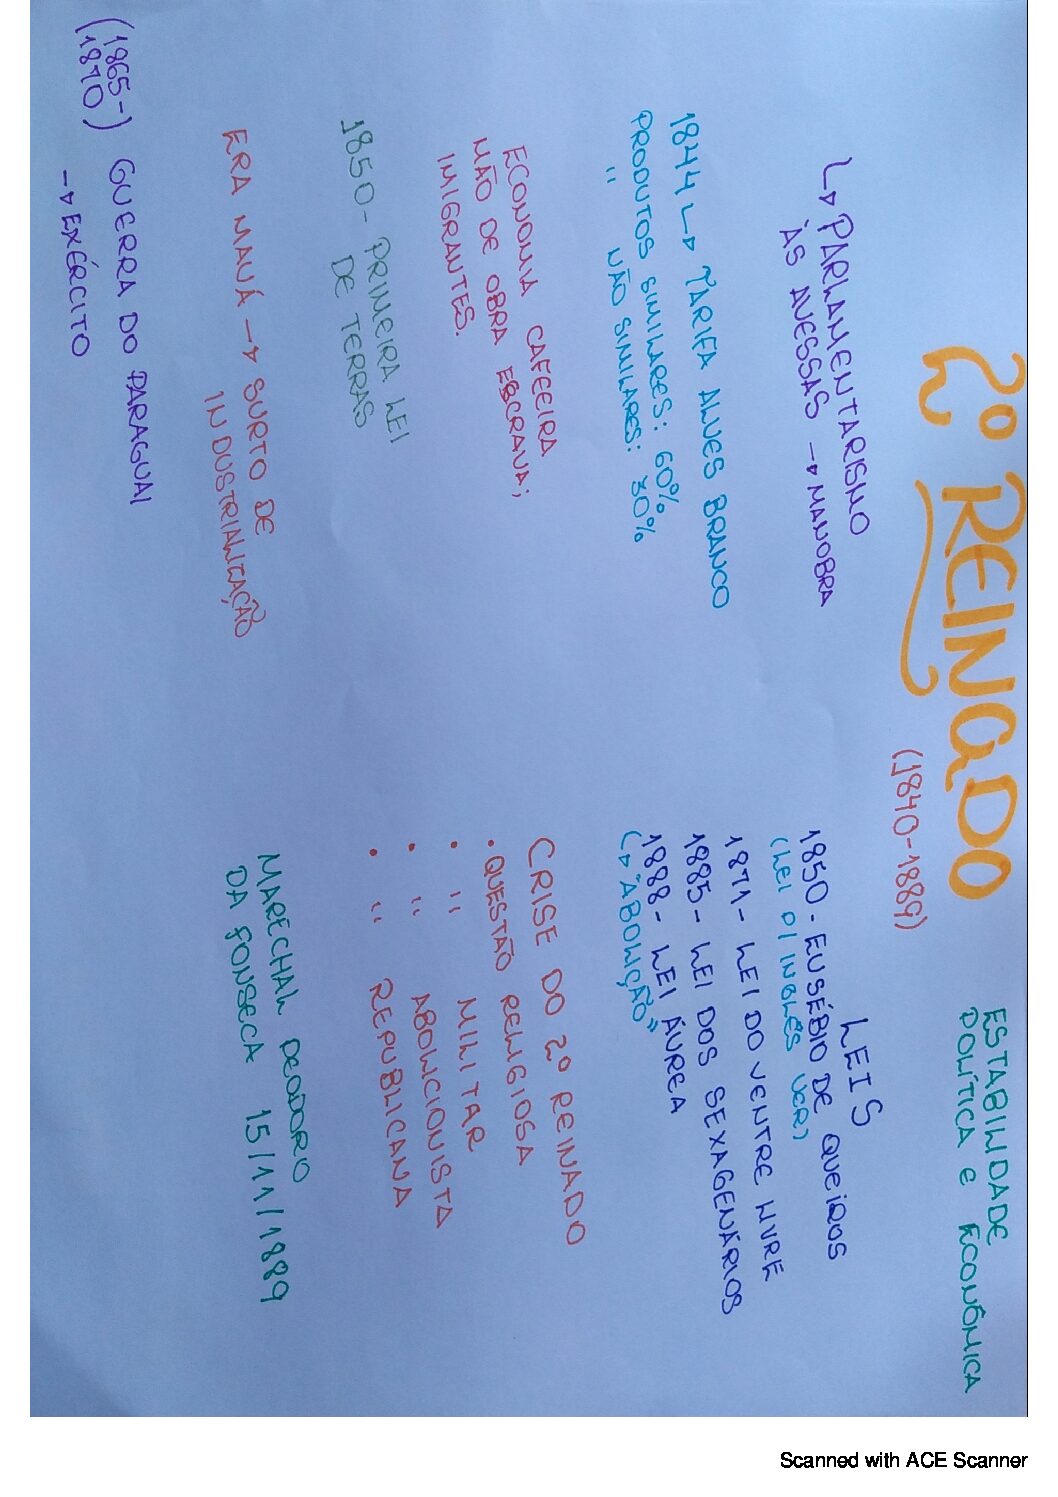 2º REINADO
(1840-1889)
ESTABILIDADE
POLÍTICA E ECONÔMICA
↳ PARLAMENTARISMO
ÀS AVESSAS → MANOBRA
1844 ↳ TARIFA ALVES BRANCO
PRODUTOS SIMILARES: 60%
" NÃO SIMILARES: 30%
ECONOMIA CAFEEIRA
MÃO DE OBRA ESCRAVA;
IMIGRANTES.
1850 - PRIMEIRA LEI
DE TERRAS
ERA MAUÁ → SURTO DE
INDUSTRIALIZAÇÃO
(1865-
1870) GUERRA DO PARAGUAI
→ EXÉRCITO
LEIS
1850 - EUSÉBIO DE QUEIROS
(LEI P/ INGLÊS VER)
1871 - LEI DO VENTRE LIVRE
1885 - LEI DOS SEXAGENÁRIOS
1888 - LEI ÁUREA
(↳ "ABOLIÇÃO"
CRISE DO 2º REINADO
• QUESTÃO RELIGIOSA
• " MILITAR
• " ABOLICIONISTA
• " REPUBLICANA
MARECHAL DEODORO
DA FONSECA 15/11/1889
Scanned with ACE Scanner